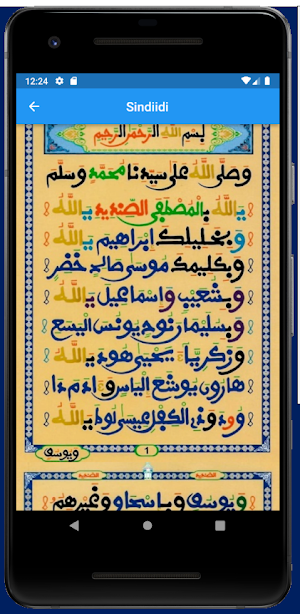 12:24
Sindiidi
بسم الله الرحمن الرحيم
وصلى الله على سيدنا محمد وسلم
يالله بالمصطفى الصنديد يالله
وبخليلك ابراهيم يالله
وبكليمك موسى صالح خضر
وبشعيب واسماعيل يالله
وبسليمان نوح يونس اليسع
وزكرياء يحيى هود يالله
هارون يوشع الياس وءادم دا
وود وذي الكفل عيسى لوط يالله
1
وبيوسف
وبيوسف وباسحاق وغيرهم